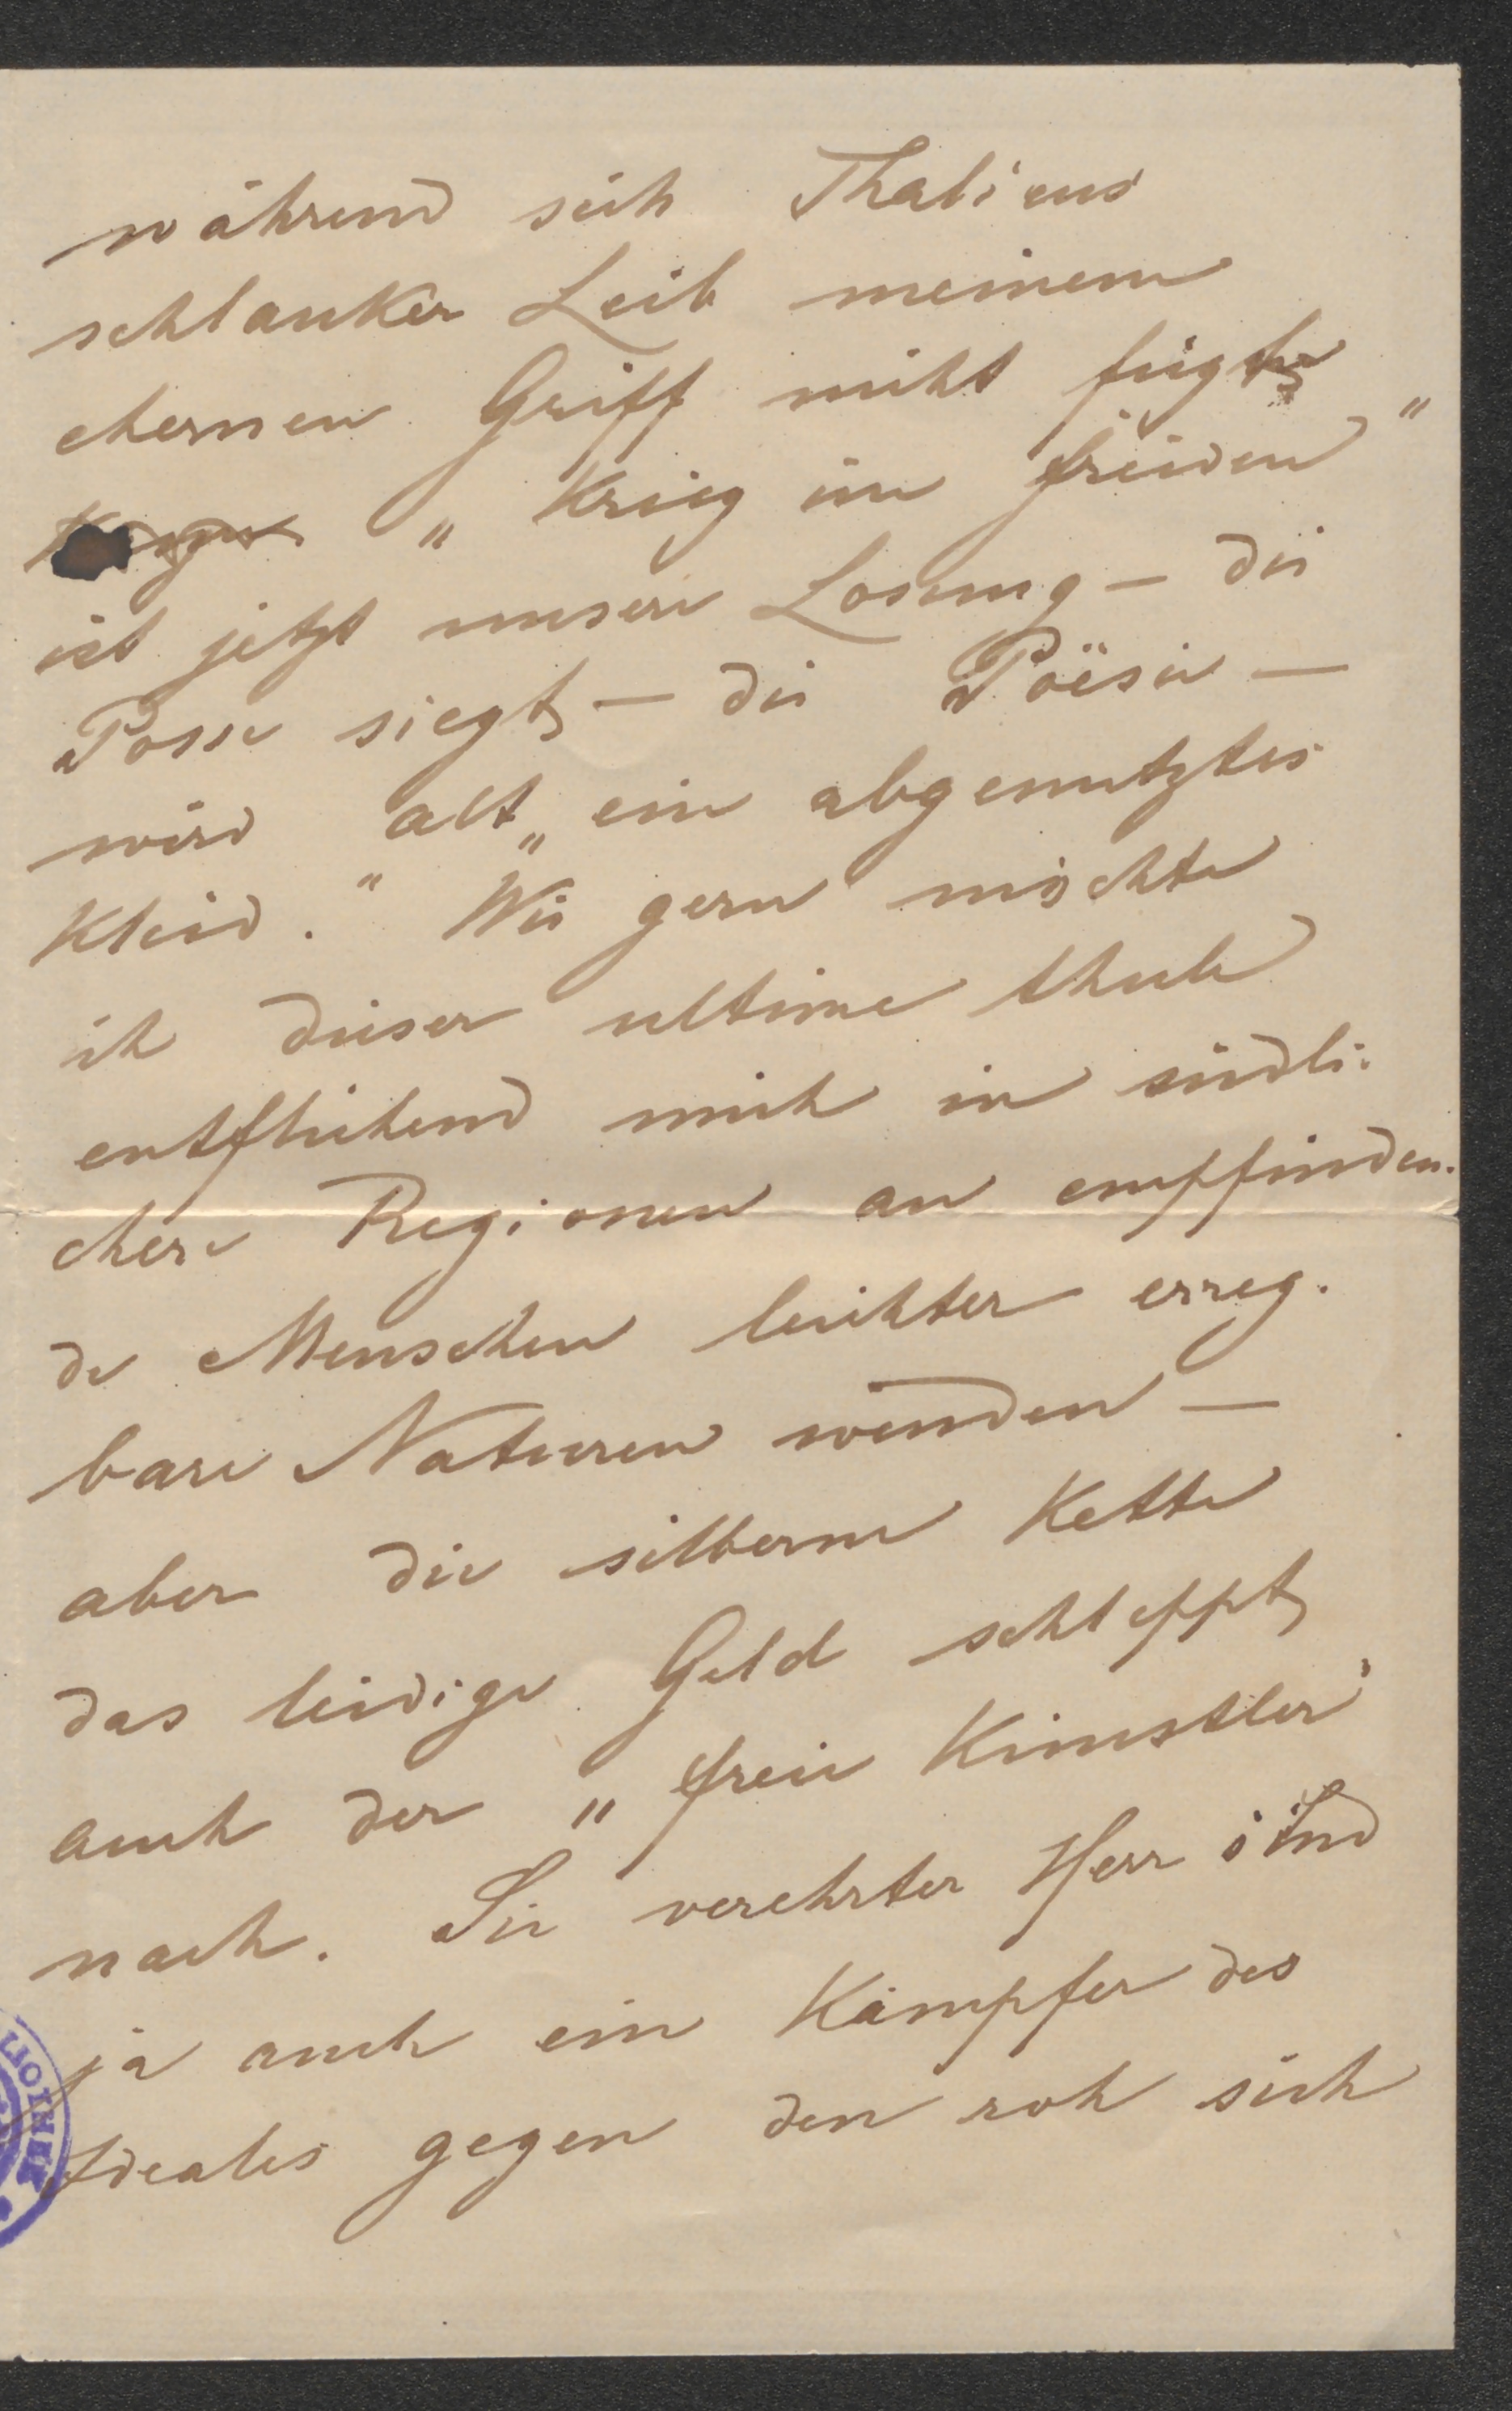 während sich Thaliens
schlanker Leib meinem
ehernen Griff nicht fügt
„Krieg im Frieden"
ist jetzt unsere Losung – die
Posse siegt – die Poësie –
wird alt „ein abgenutztes
Kleid." Wie gern möchte
ich dieser ultima thule
entfliehend mich in südli-
chere Regionen an empfinden-
de Menschen leichter erreg-
bare Naturen wenden –
aber die silberne Kette
das leidige Geld schleppt
auch der „freie Künstler"
nach. Sie verehrter Herr sind
ja auch ein Kämpfer des
Ideales gegen den roh sich
LIOTHEK